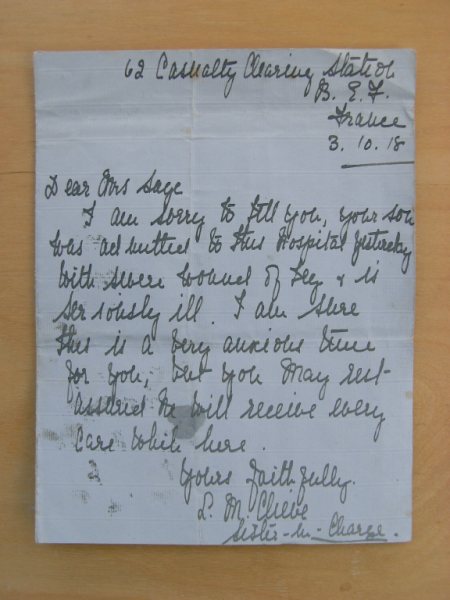 62 Casualty Clearing Station
B. E. F.
France
3. 10. 18
Dear Mrs Sage
I am sorry to tell you, your son
was admitted to this Hospital yesterday
with severe wound of leg & is
seriously ill. I am sure
this is a very anxious time
for you, but you may rest
assured he will receive every
care while here.
Yours faithfully.
L. M.
Sister-in-Charge.